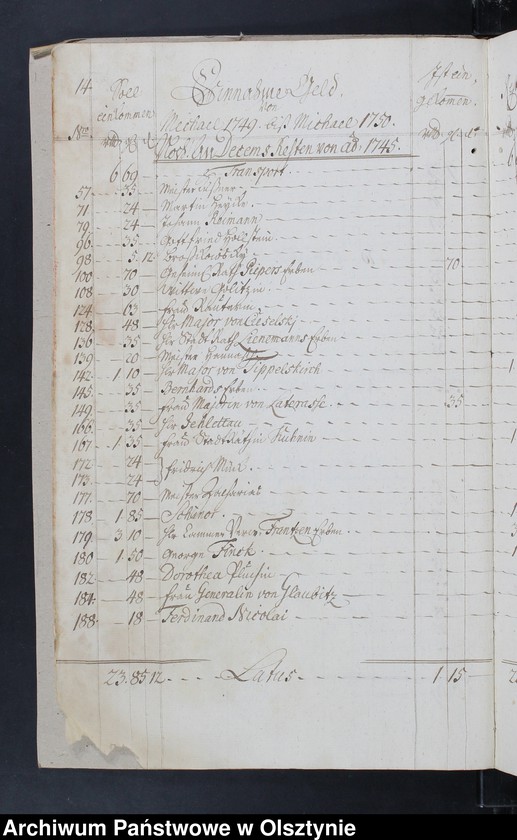 14.
Soll einkommen
Einnahme Geld.
Ist eingekommen.
von
Michael 1749. biß Michael 1750.
Nro
An Decems Resten von ao. 1745.
6 69 Transport
57 35 Meister
71 24 Martin Heyde
79 24 Johann Reimann
96 35 Gottfried Hollstein
98 5 12
100 70 Geheimt Rath Piepers Erben 70
108 30 Wittwe Politzin
124 63 Frau Rautterin
128 48 Hr Major von Cieselsky
136 35 Hr Stadt Rath Lienemanns Erben
139 20 Meister
142 1 10 Hr Major von Tippelskirch
145 35 Bernhards Erben
149 35 Frau Majorin von Laterasse 35
166 35 Hr
167 1 35 Frau Stadträthin Kuhnin
172 24 Fridrich
173 24
177 70 Meister Zacharias
178 1 85 Schinot
179 3 10 Hr Cammer Frantzen Erben
180 1 50 George Finck
182 48 Dorothea
184 48 Frau Generalin von Glaubitz
188 18 Ferdinand Nicolai
23 85 12 Latus 1 15
Archiwum Państwowe w Olsztynie